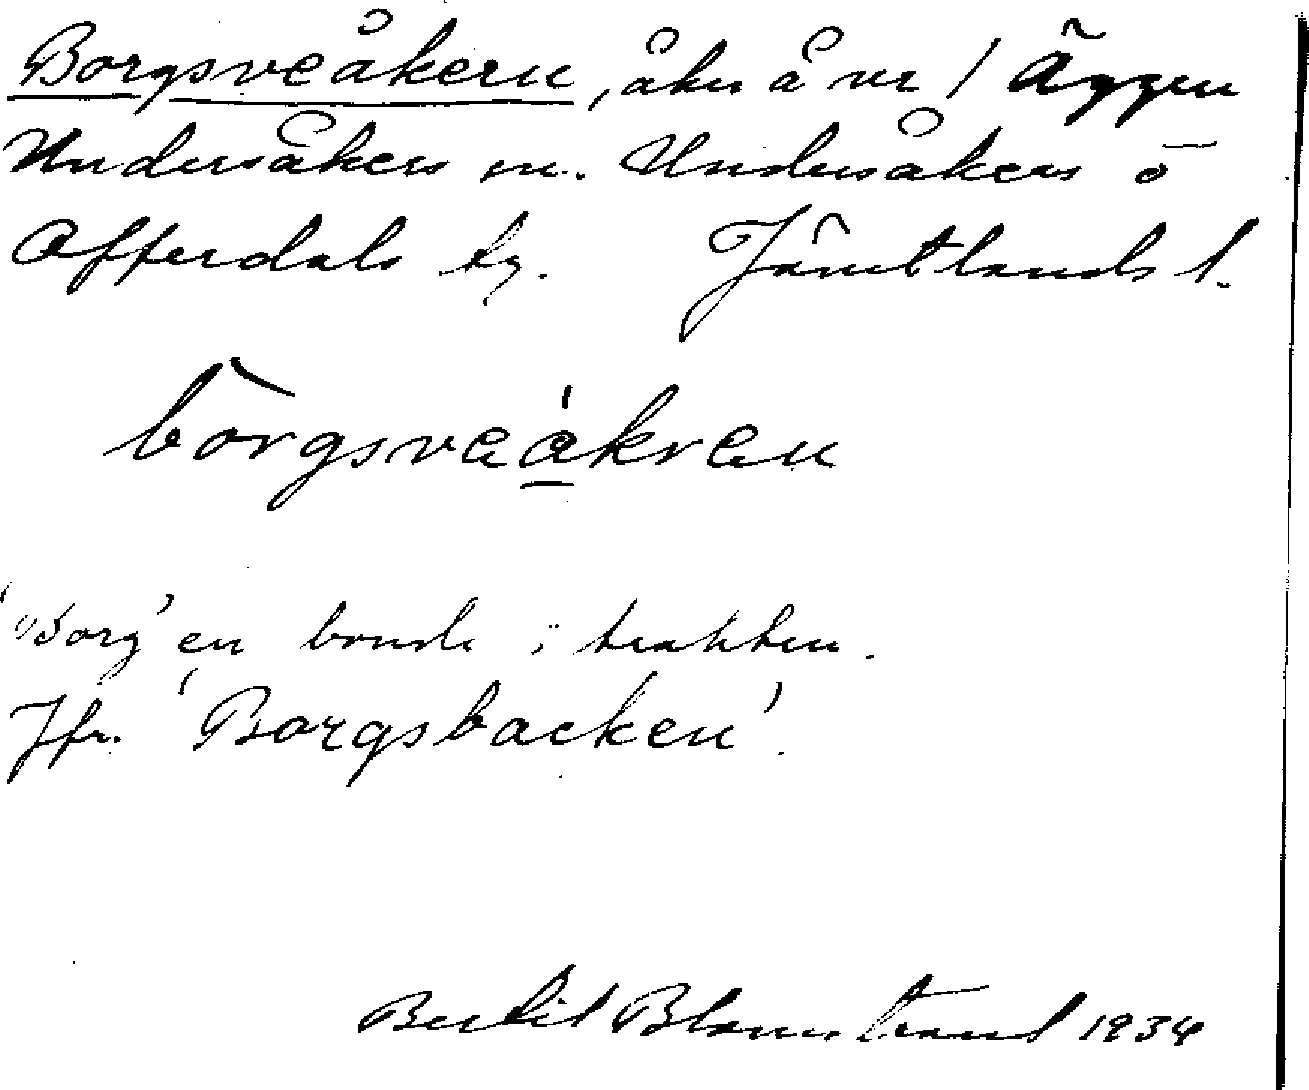 Borgsveåkern, åker å nr 1 Äggen
Undersåkers sn. Undersåkers o
Offerdals tg. Jämtlands l.
bo̅rgsveå̲kren
'Borg' en bonde i trakten.
Jfr. 'Borgsbacken'.
Bertil Blomstrand 1934